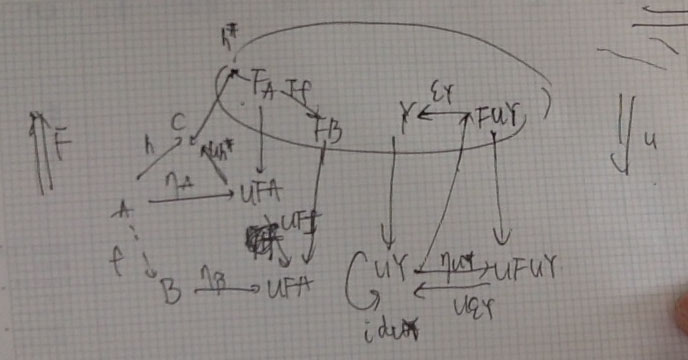 h#
FA Ff
FB
Y εY FUY
F
C
h
Uh#
ηA
A
UFA
u
f
UFf
B ηB UFA
UY ηUY UFUY
UεY